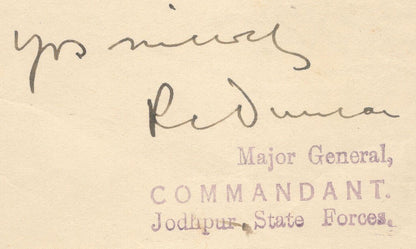 Yrs sincerely
R C Duncan
Major General,
COMMANDANT.
Jodhpur State Forces.